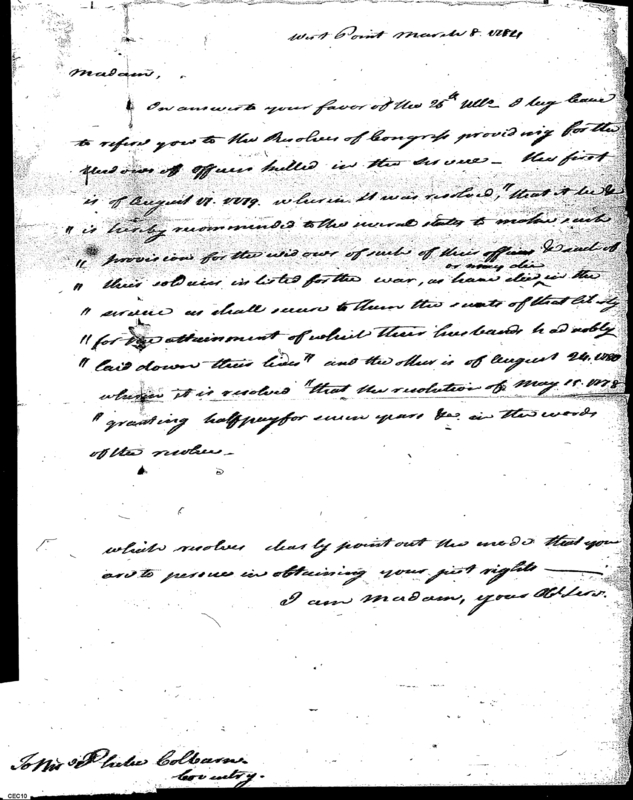 West Point March 8. 1784
Madam,
In answer to your favor of the 25th Ullo. I beg leave
to refere you to the Resolves of Congress providing for the
Widows of officers killed in the service – the first
is of August 17. 1779. wherein it was resolved, "that it be &
" is hereby recommended to the several states to make such
" provision for the widows of such of their officers & such of
" their soldiers inlisted for the war, as have died
or may die
in the
" service as shall secure to them the sweets of that liberty
" for the attainment of which their husbands had nobly
" laid down their lives" and the other is of August 24. 1780
wherein it is resolved "that the resolution of May 15. 1778
" granting halfpay for seven years &c in the words
of the resolve –
which resolves clearly point out the mode that you
are to persue in obtaining your just rights —
I am Madam, your Obt. Serv.
To Mrs. Phebe Colburn.
Coventry.
CEC10